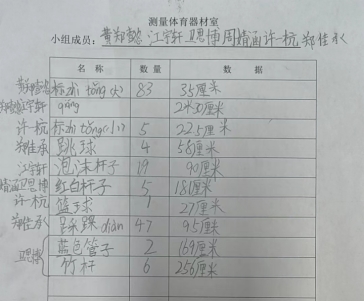 测量体育器材室
小组成员: 黄郑懿 江宇轩 卫恩博 周婧涵 许一杭 郑佳承
名称 数量 数据
标zhi tǒng(大) 83 35厘米
qiáng 2430厘米
许一杭 标zhi tǒng(小) 5 22.5厘米
郑佳承 跳球 4 58厘米
江宇轩 泡沫杆子 19 90厘米
婧涵卫恩博 红白杆子 5 181厘米
许一杭 篮球 1 27厘米
郑佳承 踩diàn 47 95厘米
卫恩博 蓝色管子 2 169厘米
竹杆 6 256厘米